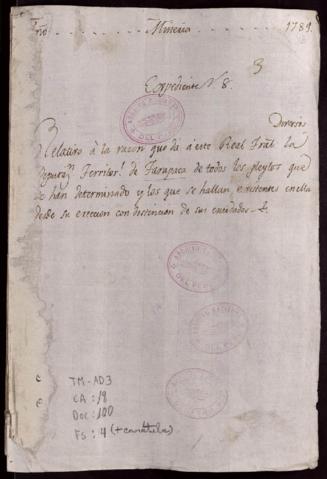 ño. Mineria 1789.
Expediente N 8.
3
Diversos
Relativo à la razon que da à este Real Tràl. la
Diputaⁿ. Territor.l de Tarapaca de todos los pleytos que
se han determinado y los que se hallan existentes en ella
desde su ereccion con distincion de sus
DEL PERU
DEL PERU
TM-AD3
CA: 18
Doc: 100
FS: 4 (+ caratula).